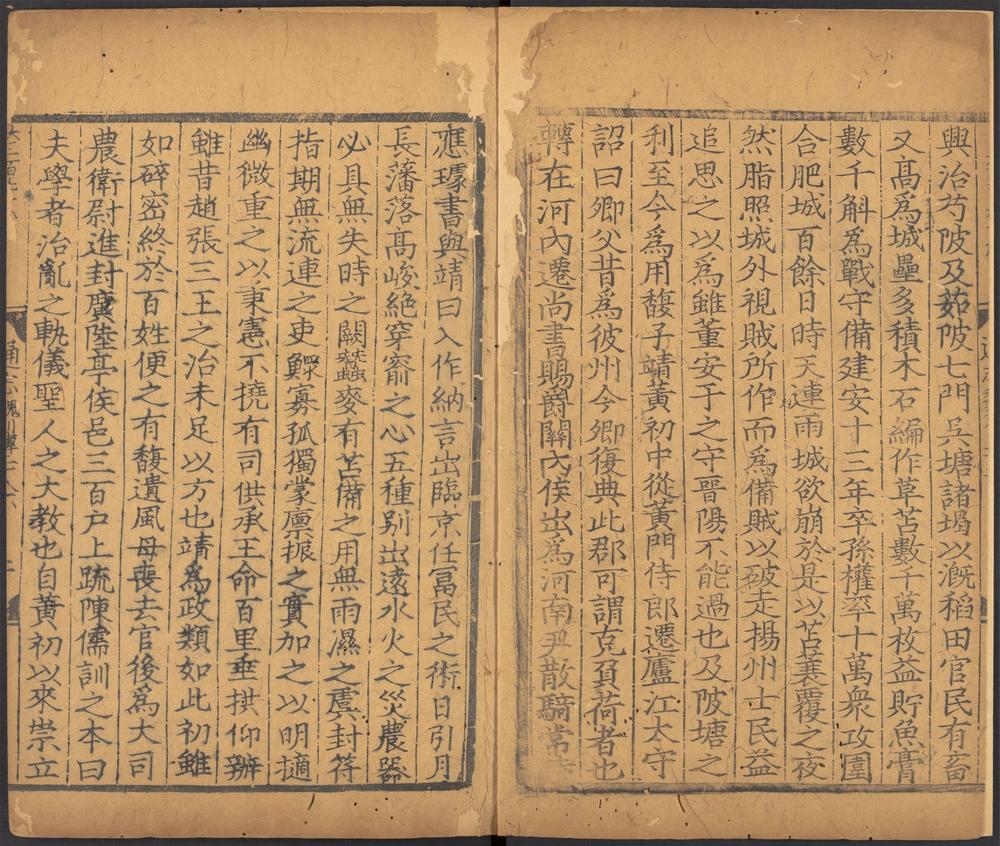 興治芍陂及茹陂七門呉塘諸堨以溉稻田官民有畜
又髙爲城壘多積木石編作草苫數千萬枚益貯魚膏
數千斛爲戰守備建安十三年卒孫權率十萬衆攻圍
合肥城百餘日時天連雨城欲崩於是以苫蓑覆之夜
然脂照城外視賊所作而爲備賊以破走揚州士民益
追思之以爲雖董安于之守晉陽不能過也及陂塘之
利至今爲用馥子靖黃初中從黃門侍郎遷廬江太守
詔曰卿父昔爲彼州今卿復典此郡可謂克負荷者也
轉在河内遷尚書賜爵關内侯出爲河南尹散騎常侍
應璩書與靖曰入作納言出臨京任冨民之術日引月
長藩落髙峻絶穿窬之心五種别出遠水火之災農器
必具無失時之闕蠶麥有苫備之用無雨濕之虞封符
指期無流連之吏鰥寡孤獨蒙廪振之實加之以明擿
幽微重之以秉憲不撓有司供承王命百里垂拱仰辦
雖昔趙張三王之治未足以方也靖爲政類如此初雖
如碎密終於百姓便之有馥遺風母喪去官後爲大司
農衛尉進封廣陸亭侯邑三百戸上疏陳儒訓之本曰
夫學者治亂之軌儀聖人之大教也自黃初以來崇立
通志魏列傳